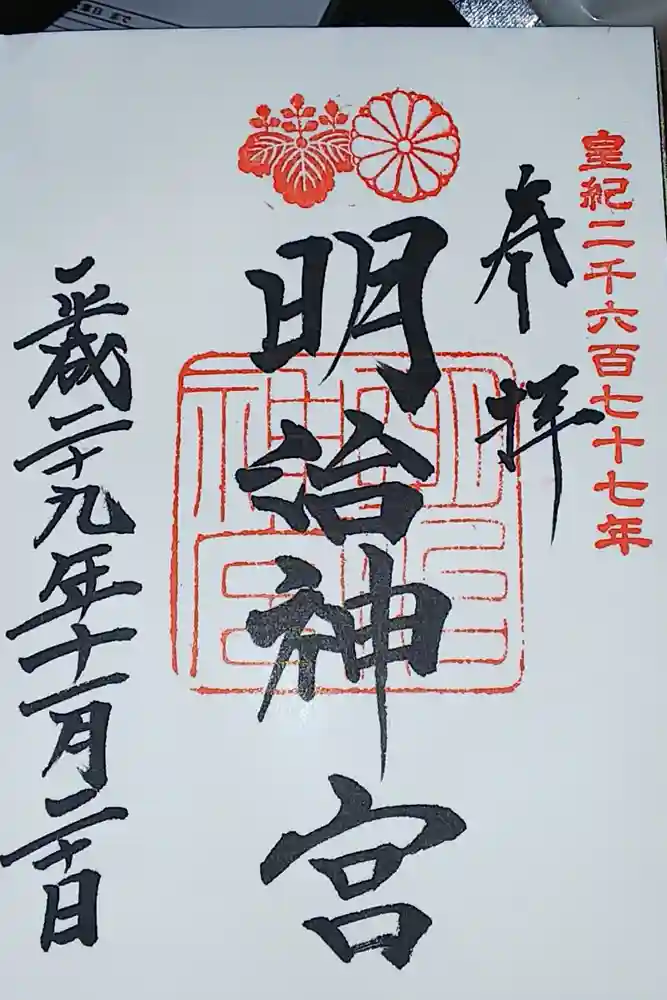 皇紀二千六百七十七年
奉拝
明治神宮
平成二十九年十一月二十日